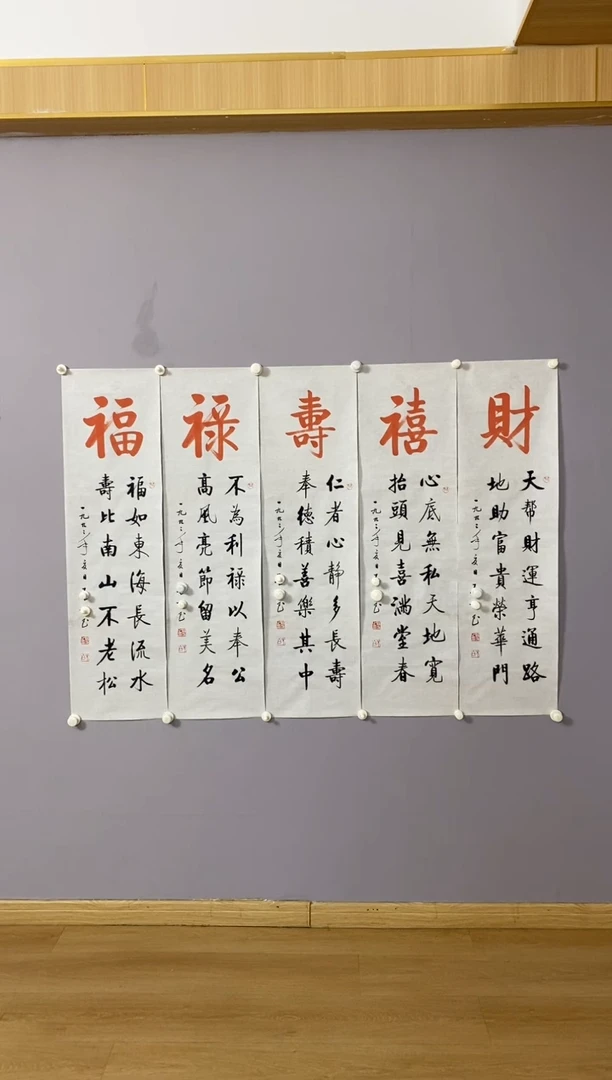 福
福如東海長流水
壽比南山不老松
祿
不為利祿以奉公
高風亮節留美名
壽
仁者心靜多長壽
奉德積善樂其中
禧
心底無私天地寬
抬頭見喜滿堂春
財
天帮財運亨通路
地助富貴榮華門